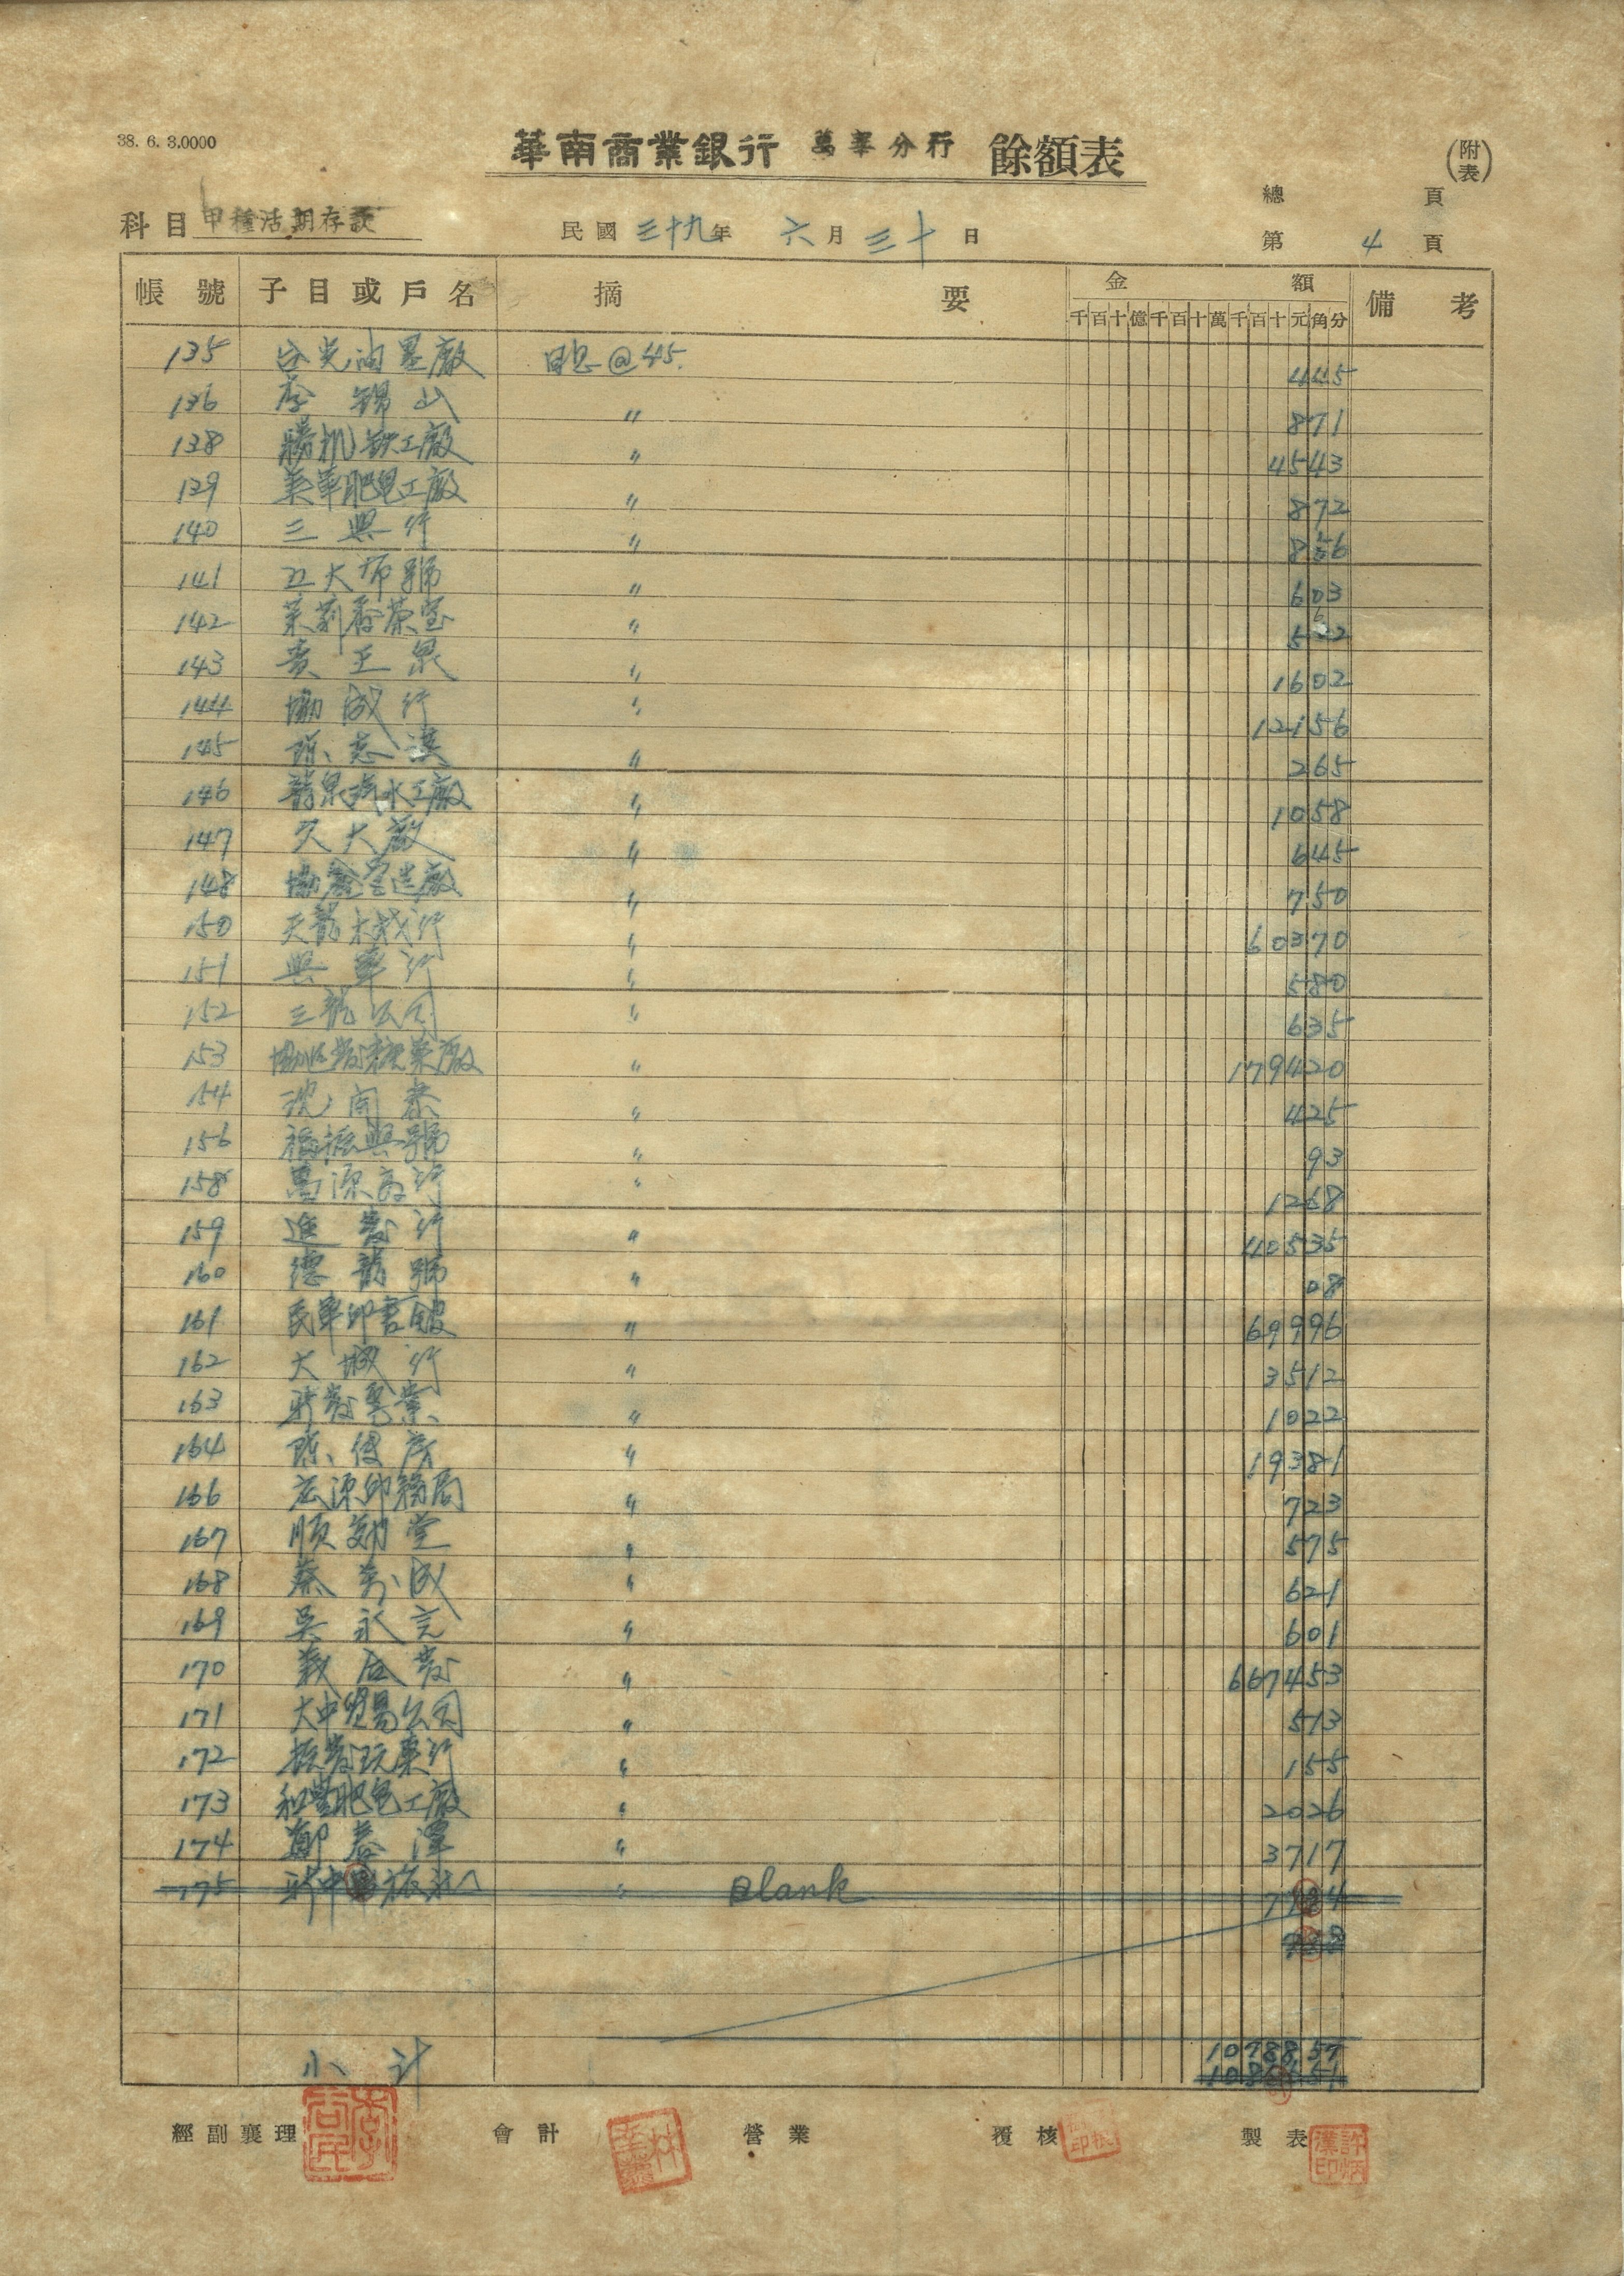 38. 6. 3.0000
華南商業銀行 萬華分行 餘額表
(附表)
總 頁
科目 甲種活期存款 民國 三十九年 六月 三十 日 第 4 頁
帳號 子目或戶名 摘要 金額 備考
千百十億千百十萬千百十元角分
135 光油墨廠 日息@45. 445
136 李錫山 〃 871
138 勝机鉄工廠 〃 4543
139 美華肥皂工廠 〃 872
140 三興行 〃 856
141 大布號 〃 603
142 茉莉香茶室 〃
143 黃玉泉 〃 1602
144 協成行 〃 12156
145 陳志漢 〃 265
146 龍泉汽水工廠 〃 1058
147 久大廠 〃 645
148 協鑫營造廠 〃 750
150 天龍木材行 〃 60370
151 興華行 〃 580
152 三龍公司 〃 635
153 協 廠 〃 179420
154 沈開泰 〃 425
156 福振興號 〃 93
158 萬源商行 〃 1268
159 進發行 〃 410535
160 德龍號 〃 08
161 民華印書館 〃 69996
162 大城行 〃 3512
163 新發 〃 1022
164 陳俊彥 〃 19381
166 宏源印務局 〃 723
167 順勛堂 〃 575
168 蔡萬成 〃 621
169 吳永言 〃 601
170 義居發 〃 667453
171 大中貿易公司 〃 513
172 振發玩東行 〃 155
173 和豐肥皂工廠 〃 2026
174 鄭春澤 〃 3717
175 新中 旅社 〃 Blank
788
小計 1078857
經副襄理 會計 營業 覆核 製表
許炳漢印